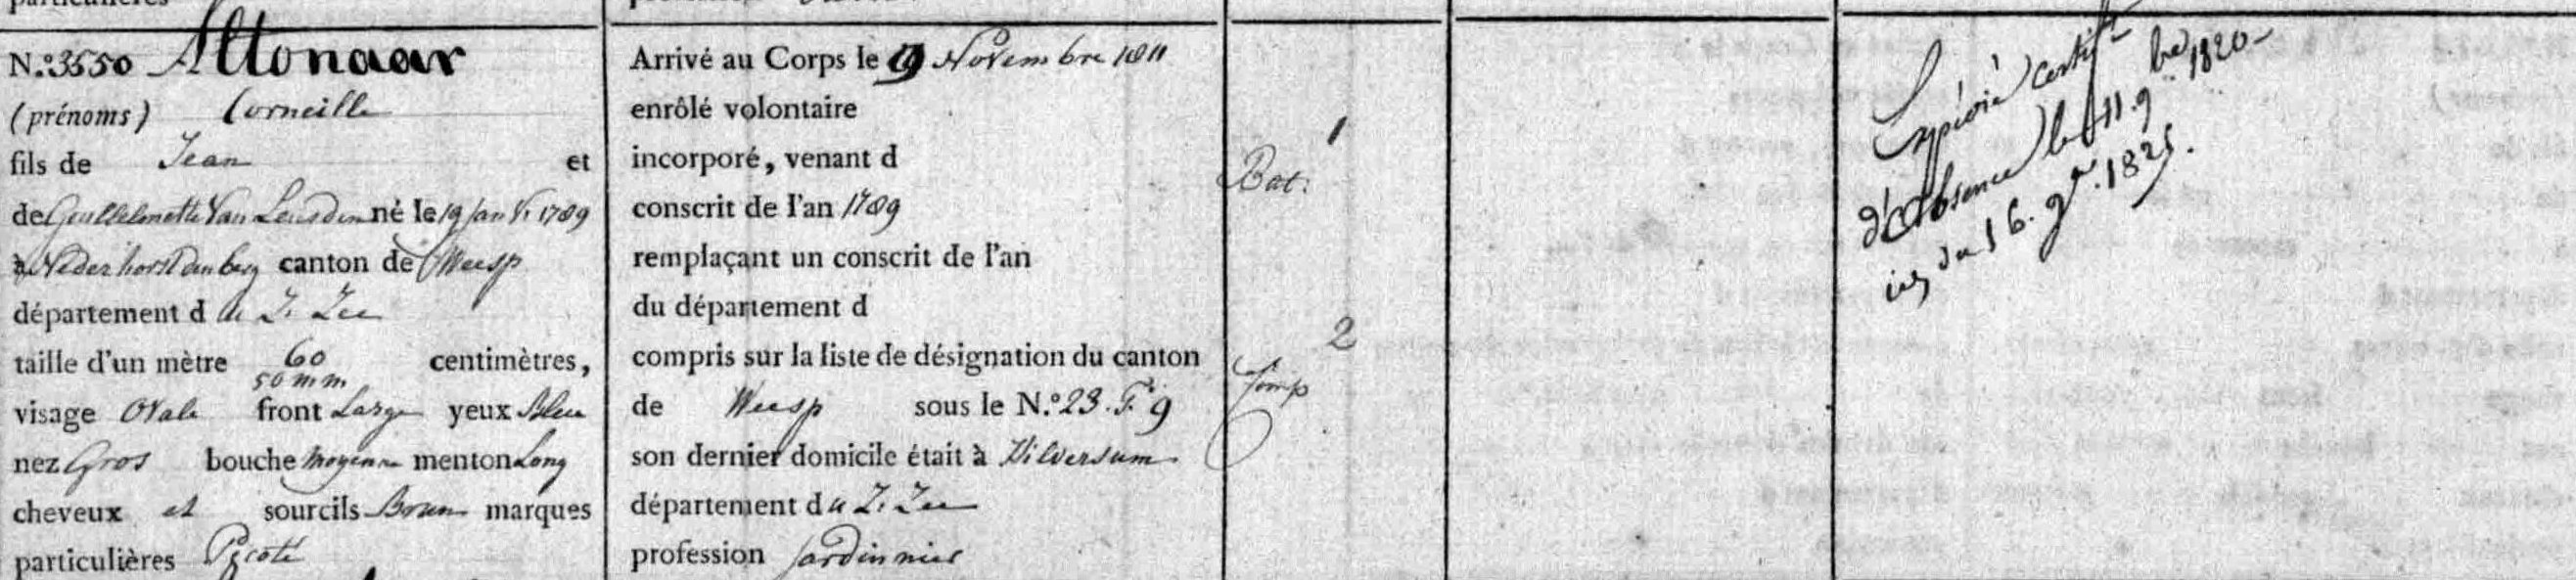 N.° 3550 Altonaar
(prénoms) Corneille
fils de Jean et
de Guillelmette Van Leusden né le 19 Janv. 1789
à Nederhorstdenberg canton de Weesp
département d u Z. Zee
taille d'un mètre 60 centimètres,
50 mm
visage Ovale front Large yeux Bleu
nez Gros bouche Moyenne menton Long
cheveux et sourcils Brun marques
particulières Picoté
Arrivé au Corps le 19 Novembre 1811
enrôlé volontaire
incorporé, venant d
conscrit de l'an 1789
remplaçant un conscrit de l'an
du département d
compris sur la liste de désignation du canton
de Weesp sous le N.° 23. 9
son dernier domicile était à Hilversum
département du Z. Zee
profession Jardinnier
1
Bat.
2
Comp
Expédié certif.
d'Absence le 11. 9 bre 1820
du 16. 9 1825.